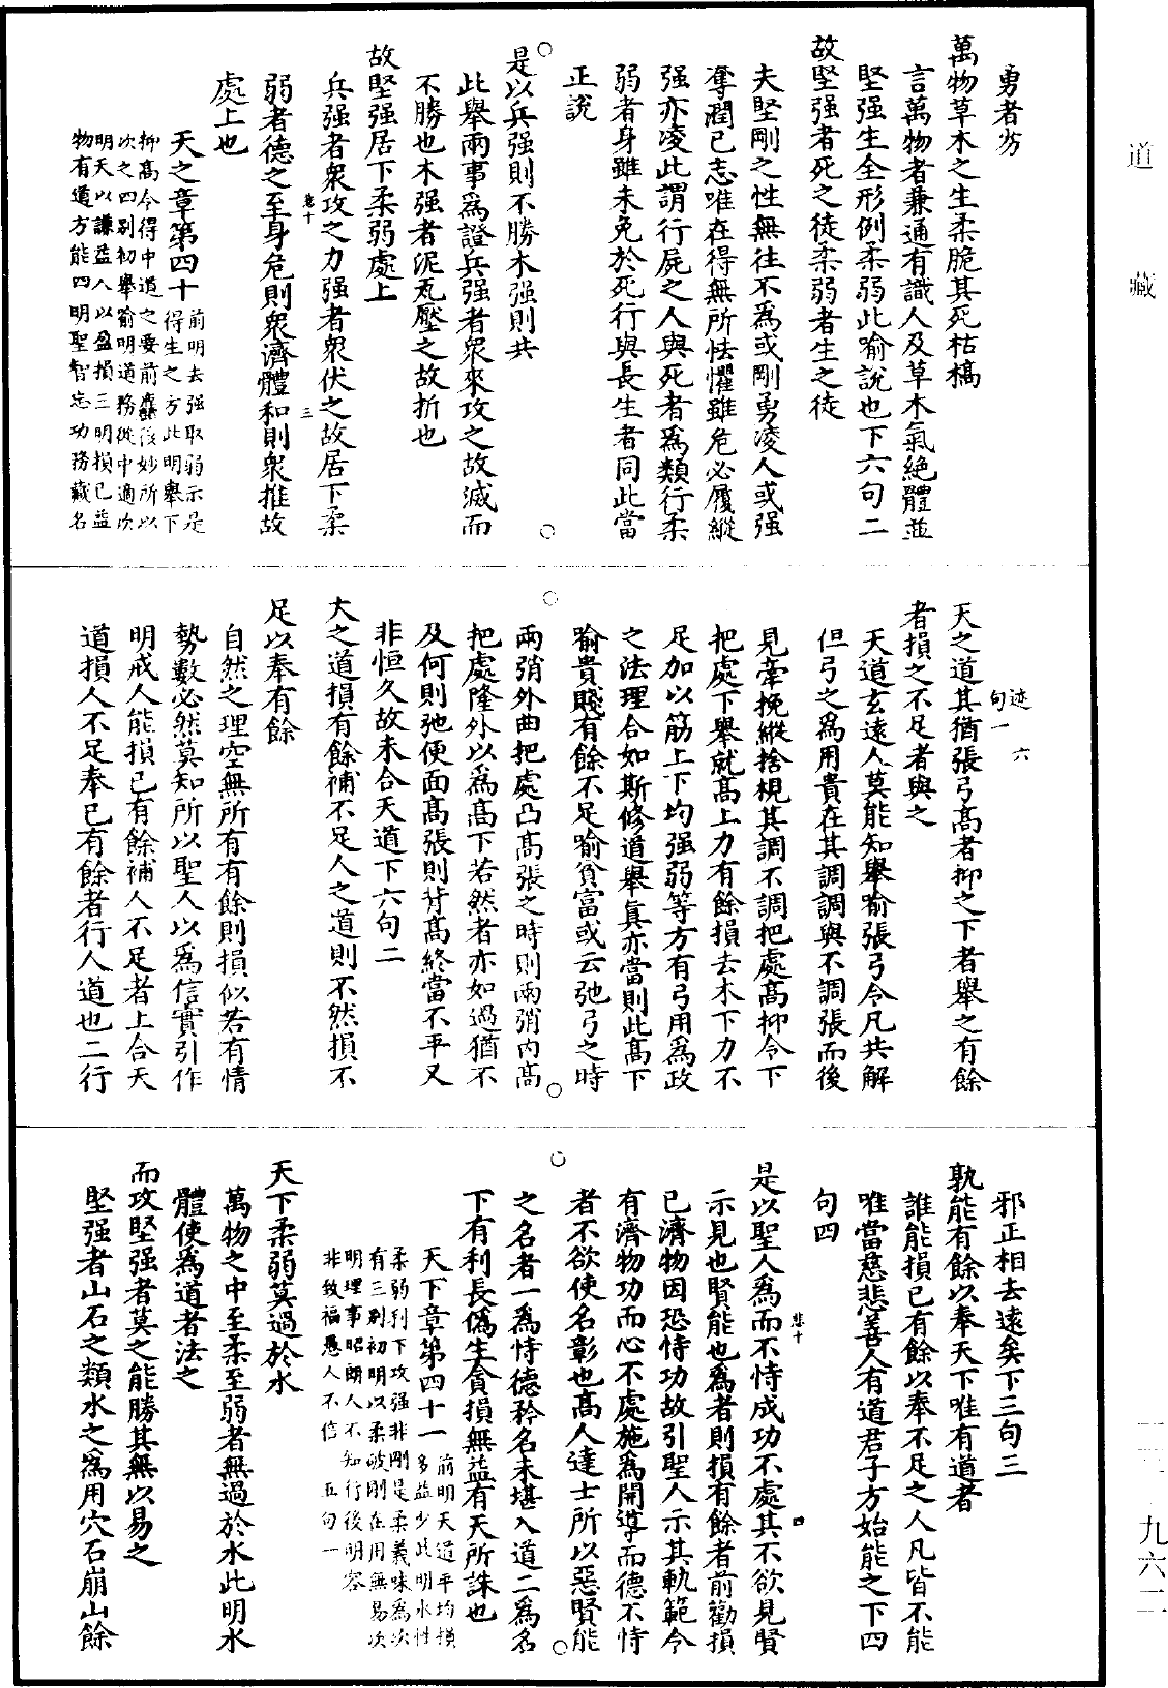 道藏
一三‧九六二
勇者劣
萬物草木之生柔脆其死枯槁
言萬物者兼通有識人及草木氣絕體並
堅强生全形例柔弱此喻說也下六句二
故堅强者死之徒柔弱者生之徒
夫堅剛之性無往不為或剛勇凌人或强
奪潤已志唯在得無所怯懼雖危必履縱
强亦凌此謂行屍之人與死者為類行柔
弱者身雖未免於死行與長生者同此當
正說
是以兵强則不勝木强則共
此舉兩事為證兵强者衆來攻之故滅而
不勝也木强者泥瓦壓之故折也
故堅强居下柔弱處上
兵强者衆攻之力强者衆伏之故居下柔
卷十
三
弱者德之至身危則衆濟體和則衆推故
處上也
天之章第四十
前明去强取弱示是
得生之方此明舉下
抑高令得中道之要前麤後妙所以
次之四別初舉喻明道務從中適次
明天以謙益人以盈損三明損已益
物有道方能四明聖智忘功務藏名
迹六
句一
天之道其猶張弓高者抑之下者舉之有餘
者損之不足者與之
天道玄遠人莫能知舉喻張弓令凡共解
但弓之為用貴在其調調與不調張而後
見牽挽縱捨梘其調不調把處高抑令下
把處下舉就高上力有餘損去木下力不
足加以筋上下均强弱等方有弓用為政
之法理合如斯修道舉真亦當則此高下
喻貴賤有餘不足喻貧富或云弛弓之時
兩弰外曲把處凸高張之時則兩弰内高
把處隆外以為高下若然者亦如過猶不
及何則弛便面高張則背高終當不平又
非恒久故未合天道下六句二
大之道損有餘補不足人之道則不然損不
足以奉有餘
自然之理空無所有有餘則損似若有情
勢數必然莫知所以聖人以為信實引作
明戒人能損已有餘補人不足者上合天
道損人不足奉已有餘者行人道也二行
邪正相去遠矣下三句三
孰能有餘以奉天下唯有道者
誰能損已有餘以奉不足之人凡皆不能
唯當慈悲善人有道君子方始能之下四
句四
是以聖人為而不恃成功不處其不欲見賢
卷十
四
示見也賢能也為者則損有餘者前勸損
已濟物因恐恃功故引聖人示其軌範令
有濟物功而心不處施為開導而德不恃
者不欲使名彰也高人達士所以惡賢能
之名者一為恃德矜名未堪入道二為名
下有利長偽生貪損無益有天所誅也
天下章第四十一
前明天道平均損
多益少此明水性
柔弱利下攻强非剛是柔義味為次
有三別初明以柔破剛在用無易次
明理事昭朗人不知行後明容
非致福愚人不信五句一
天下柔弱莫過於水
萬物之中至柔至弱者無過於水此明水
體使為道者法之
而攻堅强者莫之能勝其無以易之
堅强者山石之類水之為用穴石崩山餘